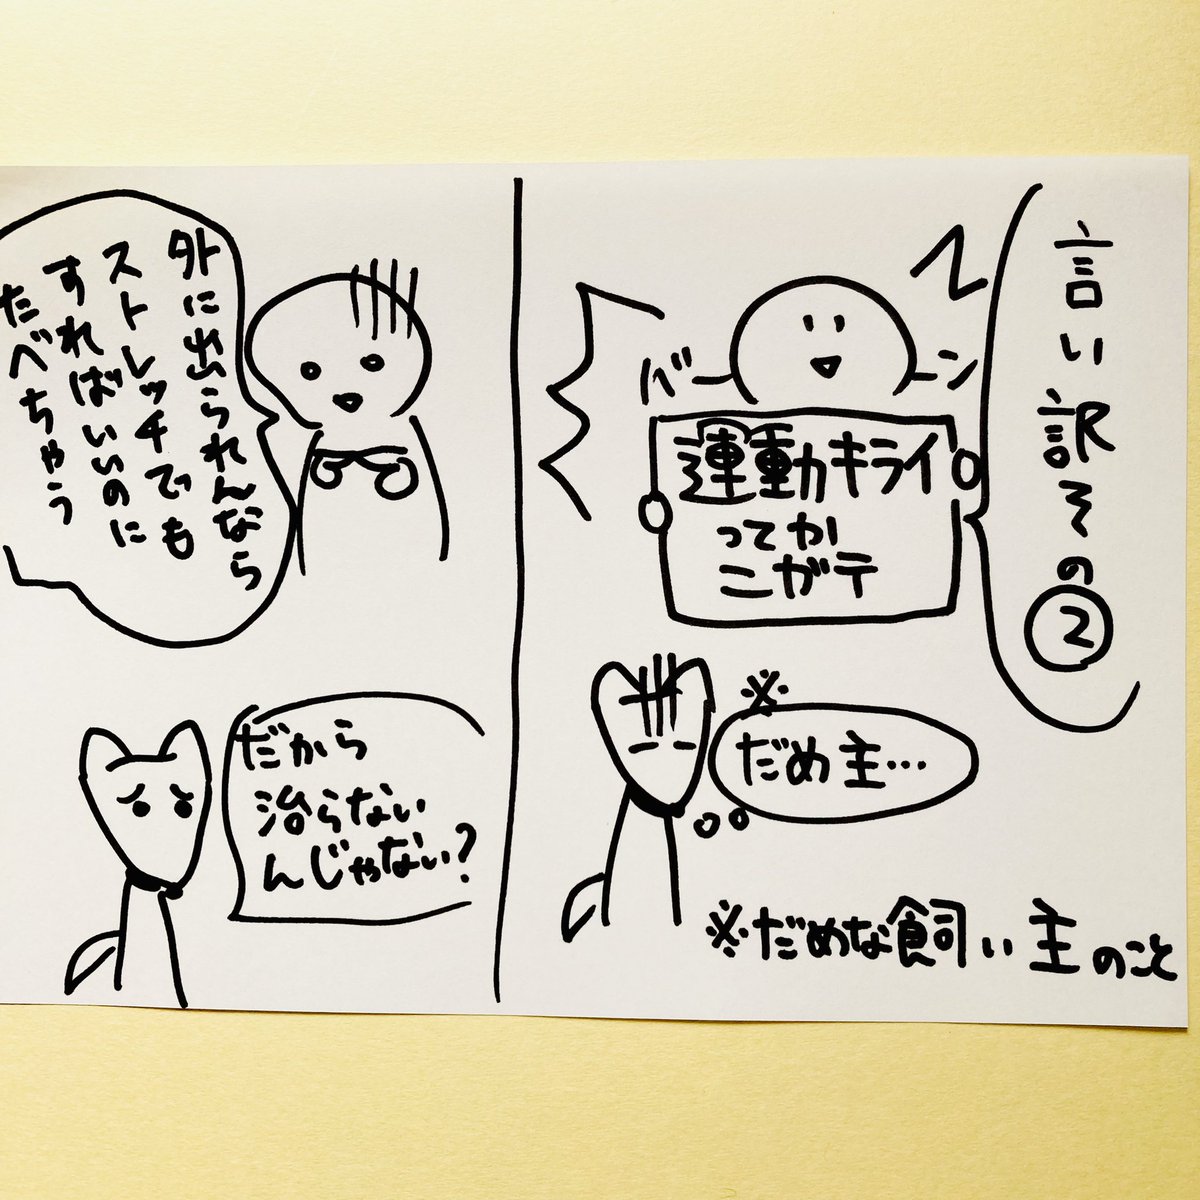 言い訳その②
バーン
運動キライ
ってか
ニガテ
※
だめ主…
※だめな飼い主のこと
外に出られんなら
ストレッチでも
すればいいのに
たべちゃう
だから
治らない
んじゃない?